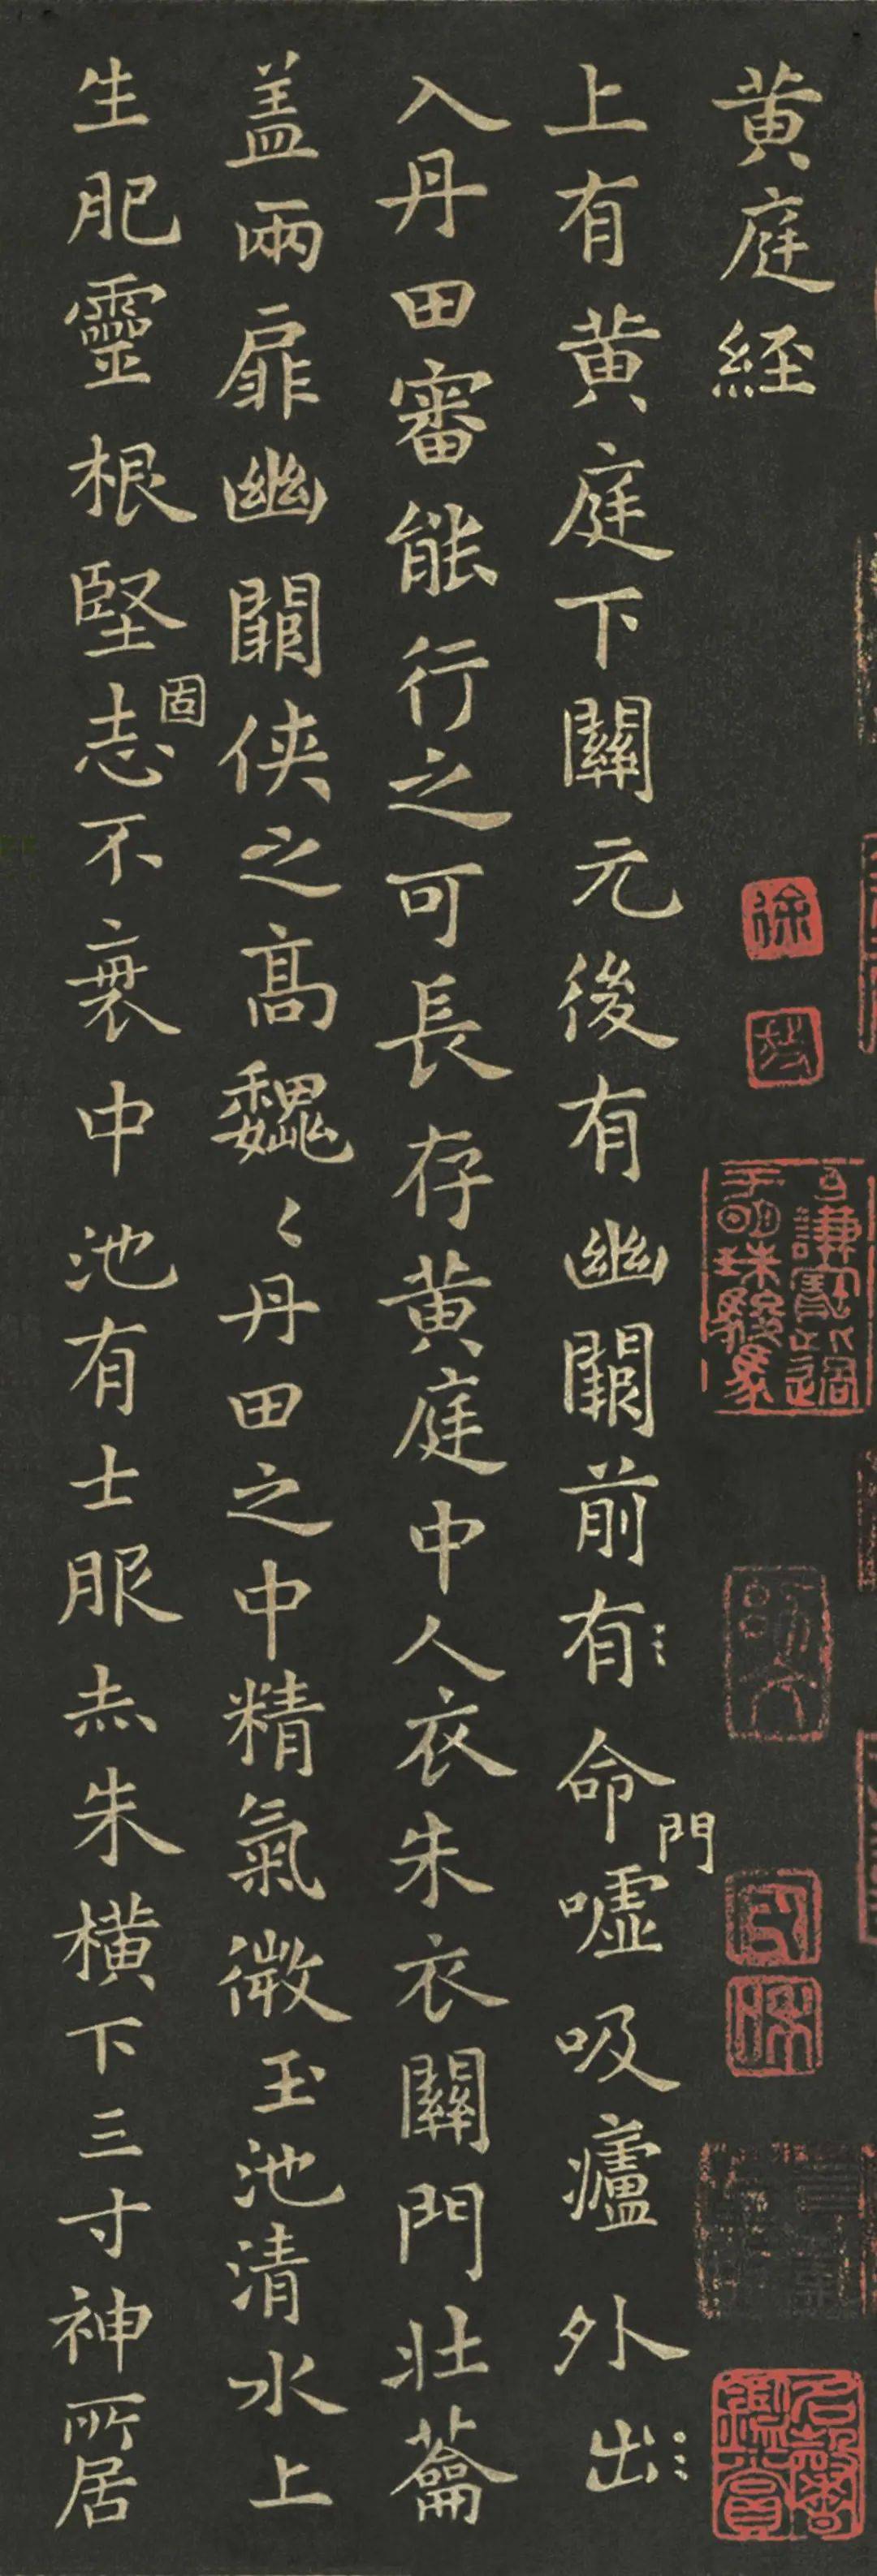 黄庭経
上有黄庭下關元後有幽闕前有命門嘘吸廬外出
入丹田審能行之可長存黄庭中人衣朱衣關門壮蘥
盖兩扉幽闕侠之髙魏〻丹田之中精氣微玉池清水上
生肥靈根堅固志不衰中池有士服赤朱横下三寸神所居
徐